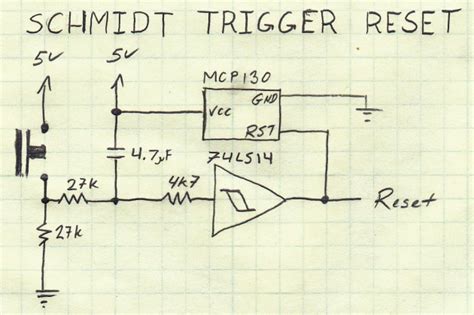 SCHMIDT TRIGGER RESET
5V
5V
MCP130
GND
Vcc
RST
4.7µF
74LS14
27k
4k7
Reset
27k